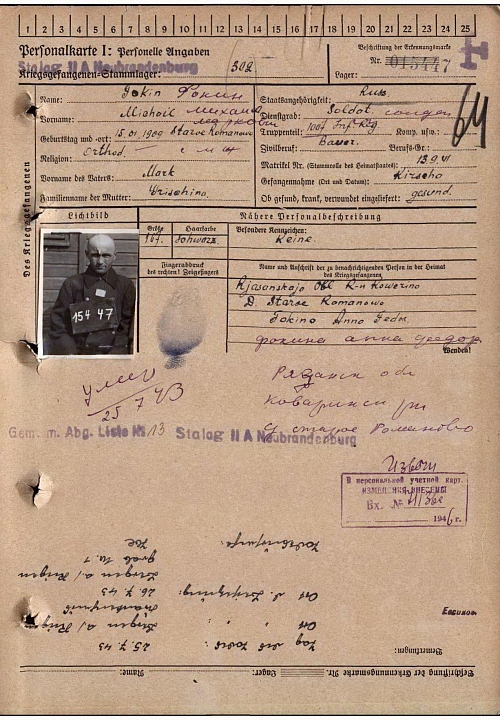 1 2 3 4 5 6 7 8 9 10 11 12 13 14 15 16 17 18 19 20 21 22 23 24 25
Personalkarte I: Personelle Angaben
Beschriftung der Erkennungsmarke
Stalag II A Neubrandenburg
Nr. 015447
Kriegsgefangenen-Stammlager: 302
Lager:
64
Des Kriegsgefangenen
Name: Fokin Фокин
Staatsangehörigkeit: Russ.
Vorname: Michail Михаил
Dienstgrad: Soldat солдат
Truppenteil: Inf. Reg Komp. usw.:
Geburtstag und -ort: 15.01.1909 Staroe Romanowo
Zivilberuf: Bauer. Berufs-Gr.:
Religion: Orthod.
Matrikel Nr. (Stammrolle des Heimatstaates): 13.9.41
Vorname des Vaters: Mark
Gefangennahme (Ort und Datum): Kirscho
Familienname der Mutter: Grischina
Ob gesund, krank, verwundet eingeliefert: gesund.
Lichtbild
Nähere Personalbeschreibung
Größe Haarfarbe
Besondere Kennzeichen:
167. schwarz.
Keine
Fingerabdruck
des rechten! Zeigefingers
Name und Anschrift der zu benachrichtigenden Person in der Heimat
des Kriegsgefangenen
Rjasanskaja Obl R-n Kowerino
D. Staroe Romanowo
Fokina Anna Fedor.
фокина анна федор
Wenden!
154 47
умер
25 7 43
Рязанск обл
Коваринск рн
Д старое Романово
Gem. Abg. Liste № 13 Stalag II A Neubrandenburg
Извещ
В персональной учетной карт.
ИЗМЕНЕНИЯ ВНЕСЕНЫ
Вх. №
1946 г.
Todesursache: Tbc
Grab Nr. 1
Ort d. Beisetzung:
26.7.43
Ort " "
Tag des Todes: 25.7.43
Bemerkungen:
Beschriftung der Erkennungsmarke Nr. Lager: Name: